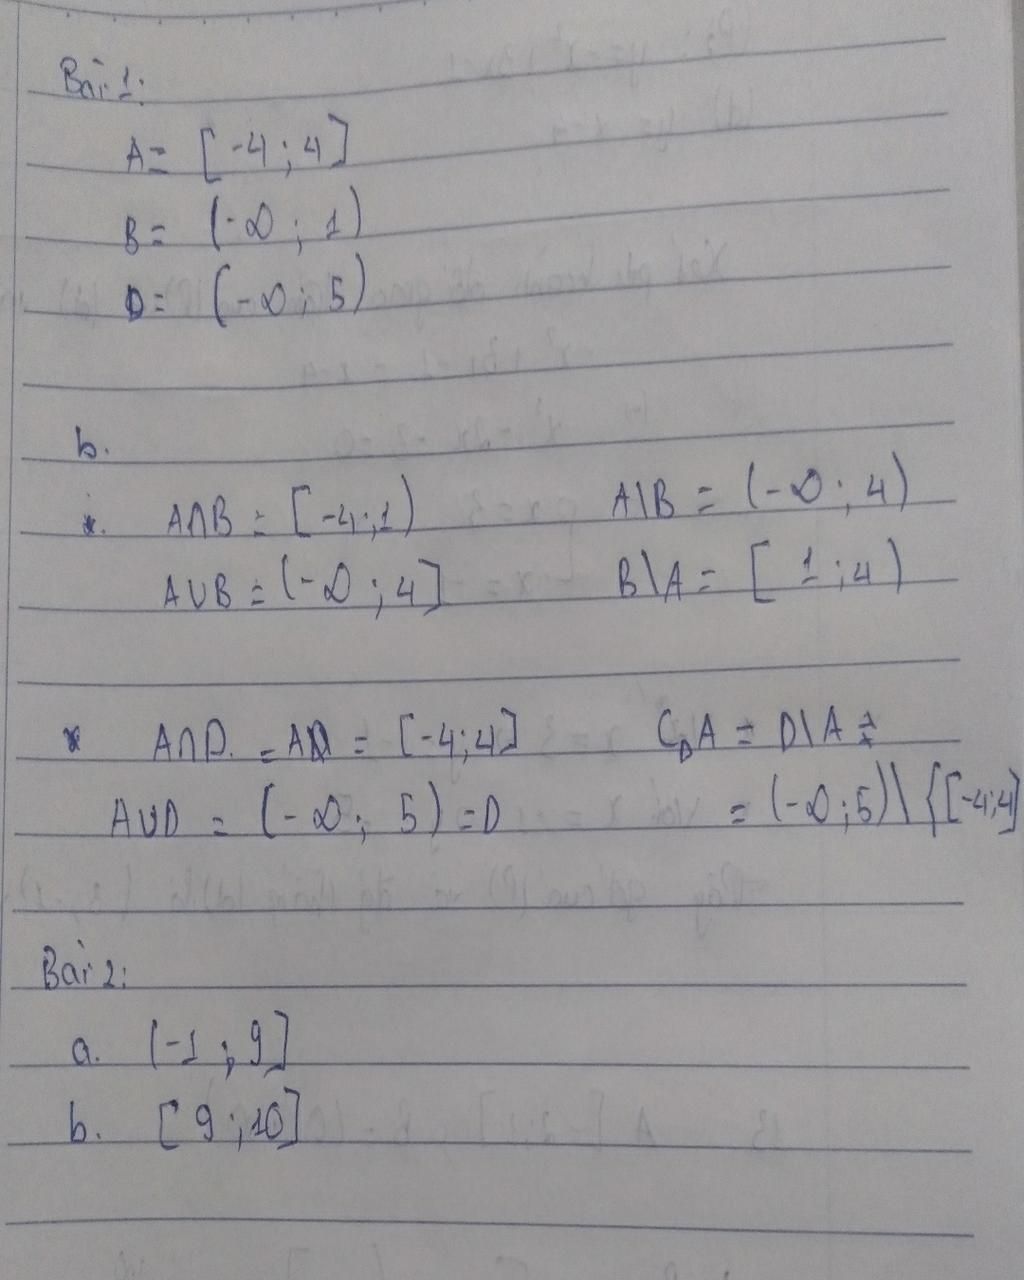 Bài 1:
A = [-4; 4]
B = (-∞; 1)
D = (-∞; 5)
b.
*. A∩B = [-4; 1) A\B = (-∞; 4)
A∪B = (-∞; 4] B\A = [1; 4)
* A∩D. = A = [-4; 4] C_D A = D\A =
A∪D = (-∞; 5) = D = (-∞; 5) \ {[-4; 4]
Bài 2:
a. (-1; 9]
b. [9; 10]